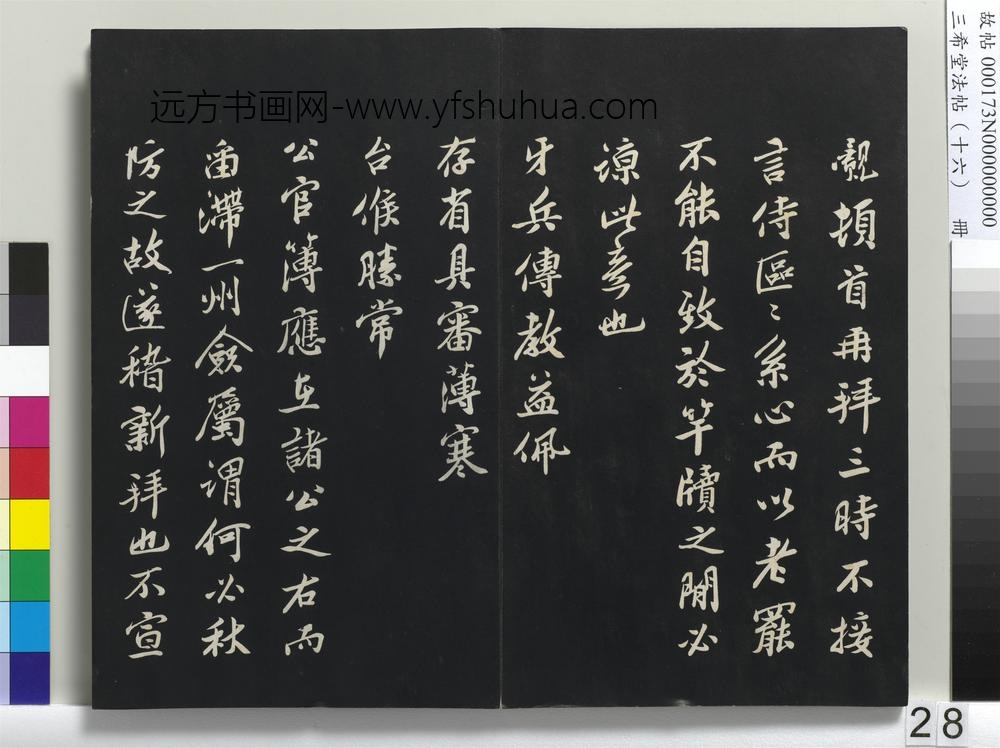 觌頓首再拜三時不接
言侍區〻系心而以老罷
不能自致於竿牘之間必
諒此意也
牙兵傳教益佩
存省具審薄寒
台候勝常
公官簿應在諸公之右而
留滯一州僉屬謂何必秋
防之故遂稽新拜也不宣
远方书画网-www.yfshuhua.com
故帖 000173N000000000
三希堂法帖(十六) 冊
28